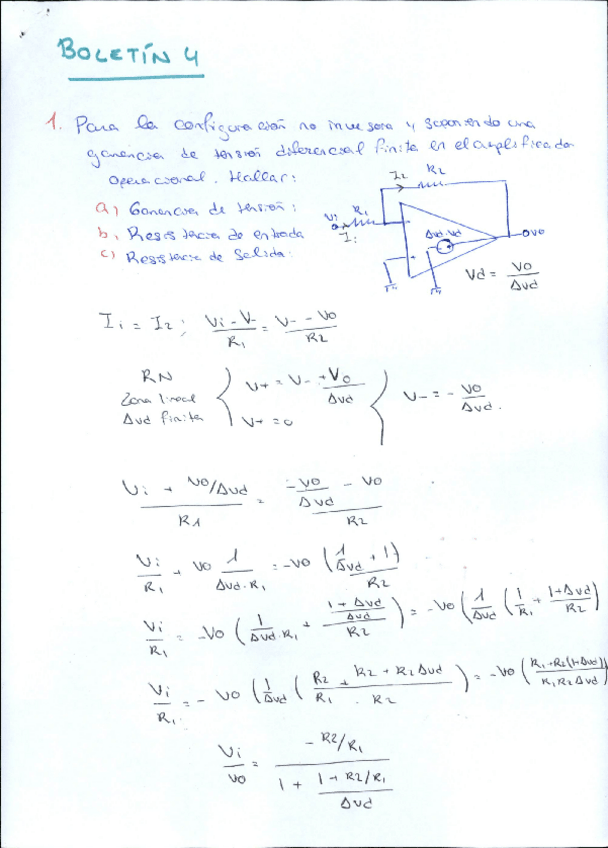 BOLETÍN 4
1. Para la configuración no inversora y suponiendo una
ganancia de tensión diferencial finita en el amplificador
operacional. Hallar:
a) Ganancia de tensión:
b) Resistencia de entrada
c) Resistencia de Salida:
I2 R2
Vi R1
Ii
Avd·Vd
Vo
Vd = Vo/Avd
Ii = I2; (Vi - V-)/R1 = (V- - Vo)/R2
RN
Zona lineal
Avd finita
V+ = V- + Vo/Avd
V+ = 0
V- = - Vo/Avd.
(Vi + Vo/Avd)/R1 = (-Vo/Avd - Vo)/R2
Vi/R1 + Vo 1/(Avd·R1) = -Vo (1/Avd + 1)/R2
Vi/R1 = -Vo (1/(Avd·R1) + ((1+Avd)/Avd)/R2) = -Vo (1/Avd (1/R1 + (1+Avd)/R2)
Vi/R1 = - Vo (1/Avd (R2 + R2 + R2Avd / R1 · R2) = -Vo ((R1+R2(1+Avd))/(R1R2Avd))
Vi/Vo = (-R2/R1)/(1 + (1+R2/R1)/Avd)